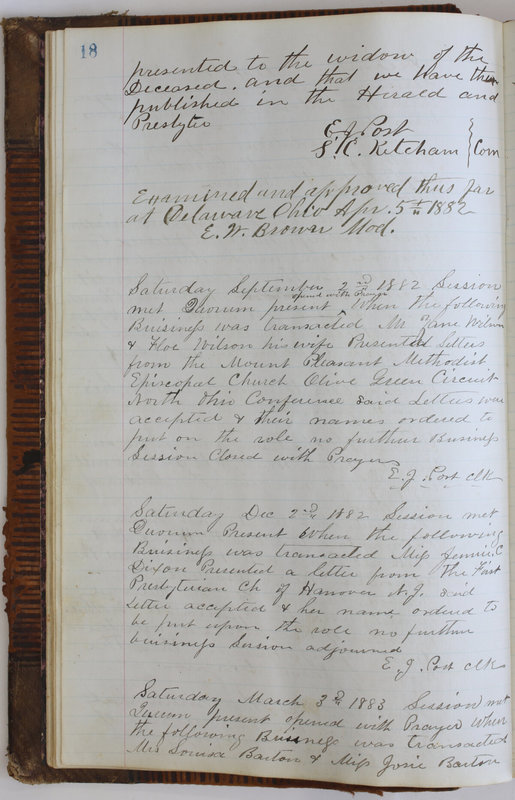 18
presented to the widow of the
Deceased. and that we have them
published in the Herald and
Presbyter
E. J. Post
S. C. Ketcham } Com
Examined and approved thus far
at Delaware Ohio Apr. 5th 1882
E. W. Brown Mod.
Saturday September 2nd 1882 Session
met Quorum present opened with Prayer When the following
Buisings was transacted Mr Zane Wilson
& Floe Wilson his wife Presented Letters
from the Mount Pleasant Methodist
Episcopal Church Olive Green Circuit
North Ohio Conference said Letters was
accepted & their names ordered to
put on the role no further Busings
Session Closed with Prayer
E. J. Post clk
Saturday Dec 2nd 1882 Session met
Quorum Present When the following
Buisings was transacted Miss Jennie C
Dixon Presented a letter from the First
Presbyterian Ch of Hanover N.J. said
letter accepted & her name ordered to
be put upon the role no further
buisings Session adjourned
E. J. Post clk
Saturday March 3d 1883 Session met
Quorum present opened with Prayer When
the following Business was transacted
Mrs Louisa Barton & Miss Josie Barton